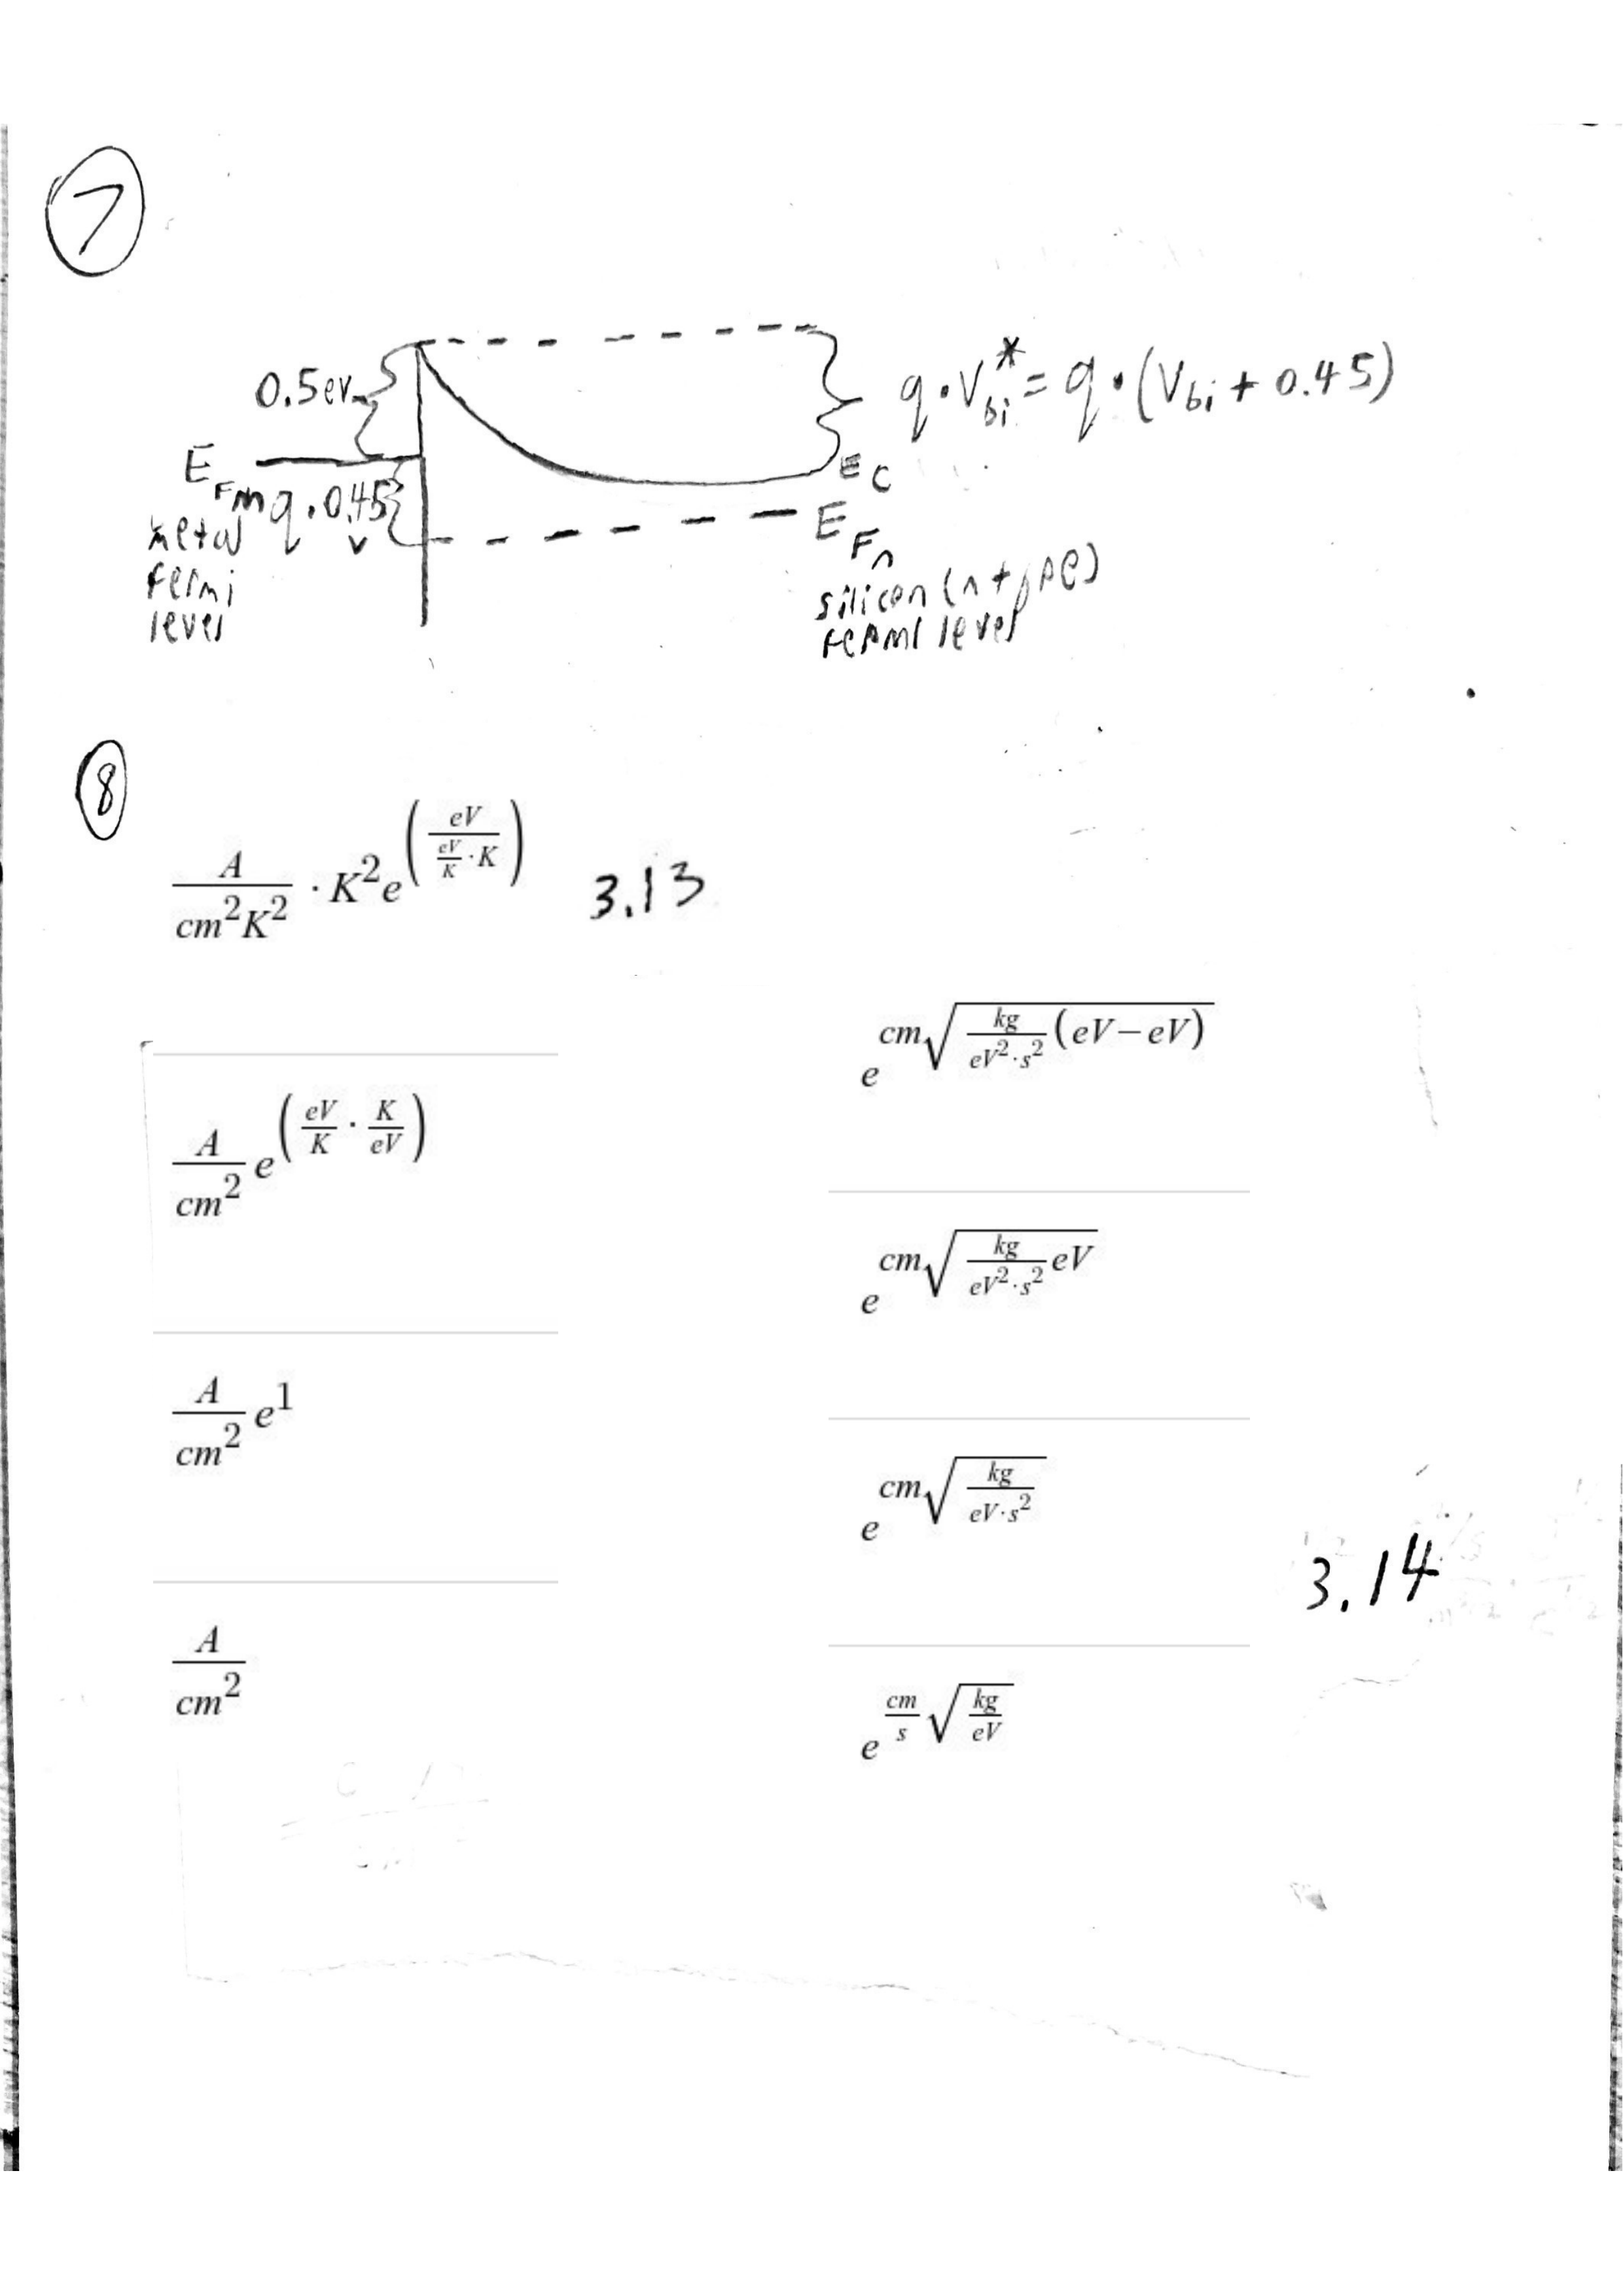 7
0.5ev
q·V*bi = q·(Vbi + 0.45)
EFm
q·0.45 v
EC
EFn
metal
fermi
level
silicon (n+ type)
fermi level
8
A/(cm²K²) · K²e^(eV/((eV/K)·K)) 3.13
A/cm² e^((eV/K)·(K/eV))
A/cm² e^1
A/cm²
e^(cm√(kg/(eV²·s²)(eV−eV)))
e^(cm√(kg/(eV²·s²)eV))
e^(cm√(kg/(eV·s²)))
3.14
e^((cm/s)√(kg/eV))